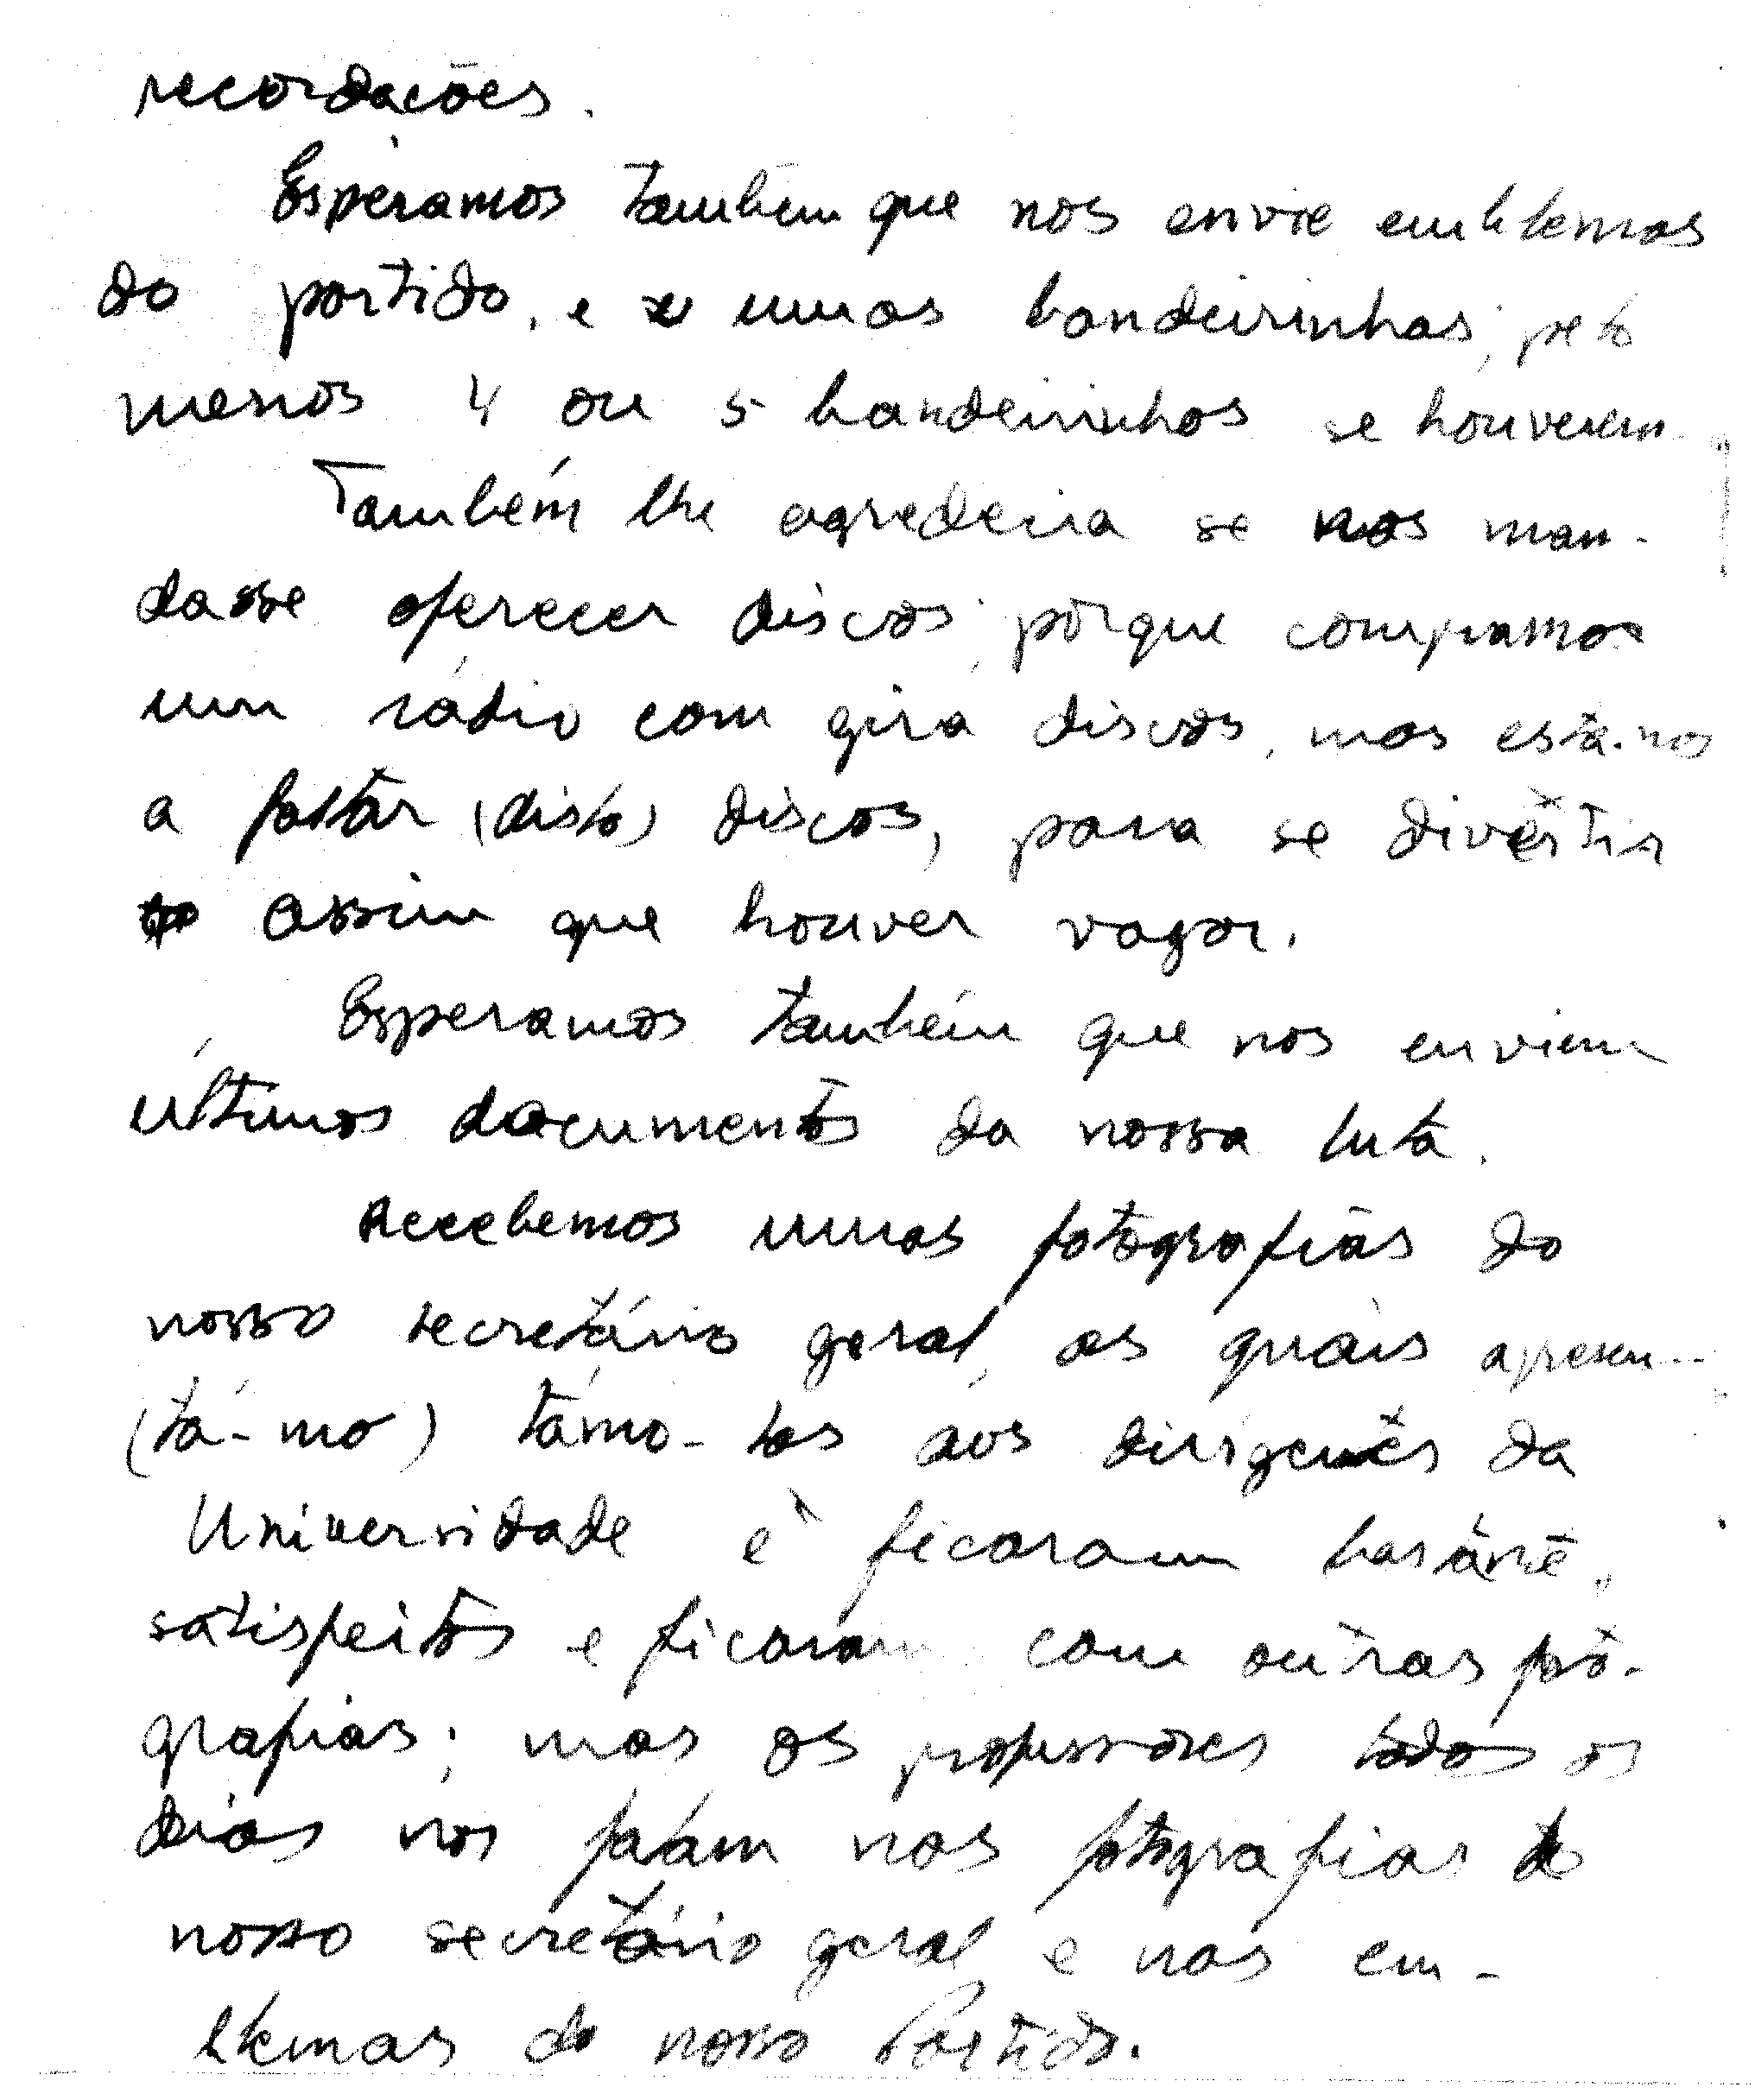 recordacões.
Esperamos também que nos envie emblemas
do partido, e umas bandeirinhas, pelo
menos 4 ou 5 bandeirinhas se houverem
Também lhe agredeiia se nos man-
dasse oferecer discos, porque compramos
um rádio com gira discos, mas está-nos
a faltar (disto) discos, para se divertir
assim que houver vagar.
Esperamos também que nos enviem
últimos documentos da nossa luta.
Recebemos umas fotografias do
nosso secretário geral, as quais apresen-
(tá-mo) támo-las aos dirigentes da
Universidade e ficaram bastante
satisfeitos e ficaram com outras foto-
grafias; mas os professores todos os
dias nos falam nas fotografias do
nosso secretário geral e nas em-
blemas do nosso Partido.